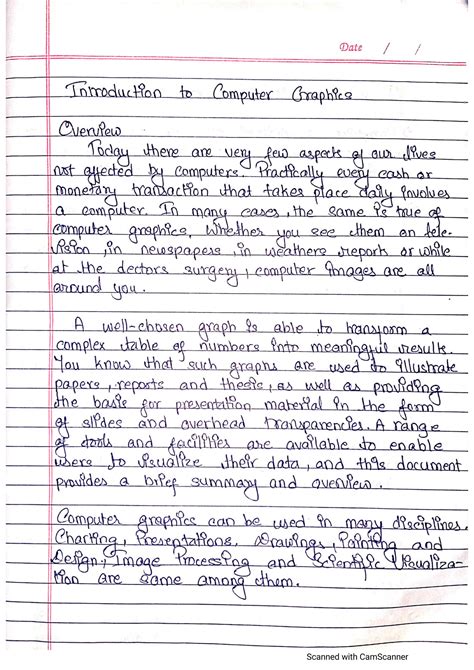 Date / /
Introduction to Computer Graphics
Overview
Today there are very few aspects of our lives
not affected by computers. Practically every cash or
monetary transaction that takes place daily involves
a computer. In many cases, the same is true of
computer graphics, Whether you see them on tele-
vision, in newspapers, in weathers reports or while
at the doctors surgery, computer images are all
around you.
A well-chosen graph is able to transform a
complex table of numbers into meaningful results.
You know that such graphs are used to illustrate
papers, reports and thesis, as well as providing
the basis for presentation material in the form
of slides and overhead transparencies. A range
of tools and facilities are available to enable
users to visualize their data, and this document
provides a brief summary and overview.
Computer graphics can be used in many disciplines.
Charting, Presentations, Drawings, Painting and
Design, Image Processing and Scientific Visualiza-
tion are some among them.
Scanned with CamScanner